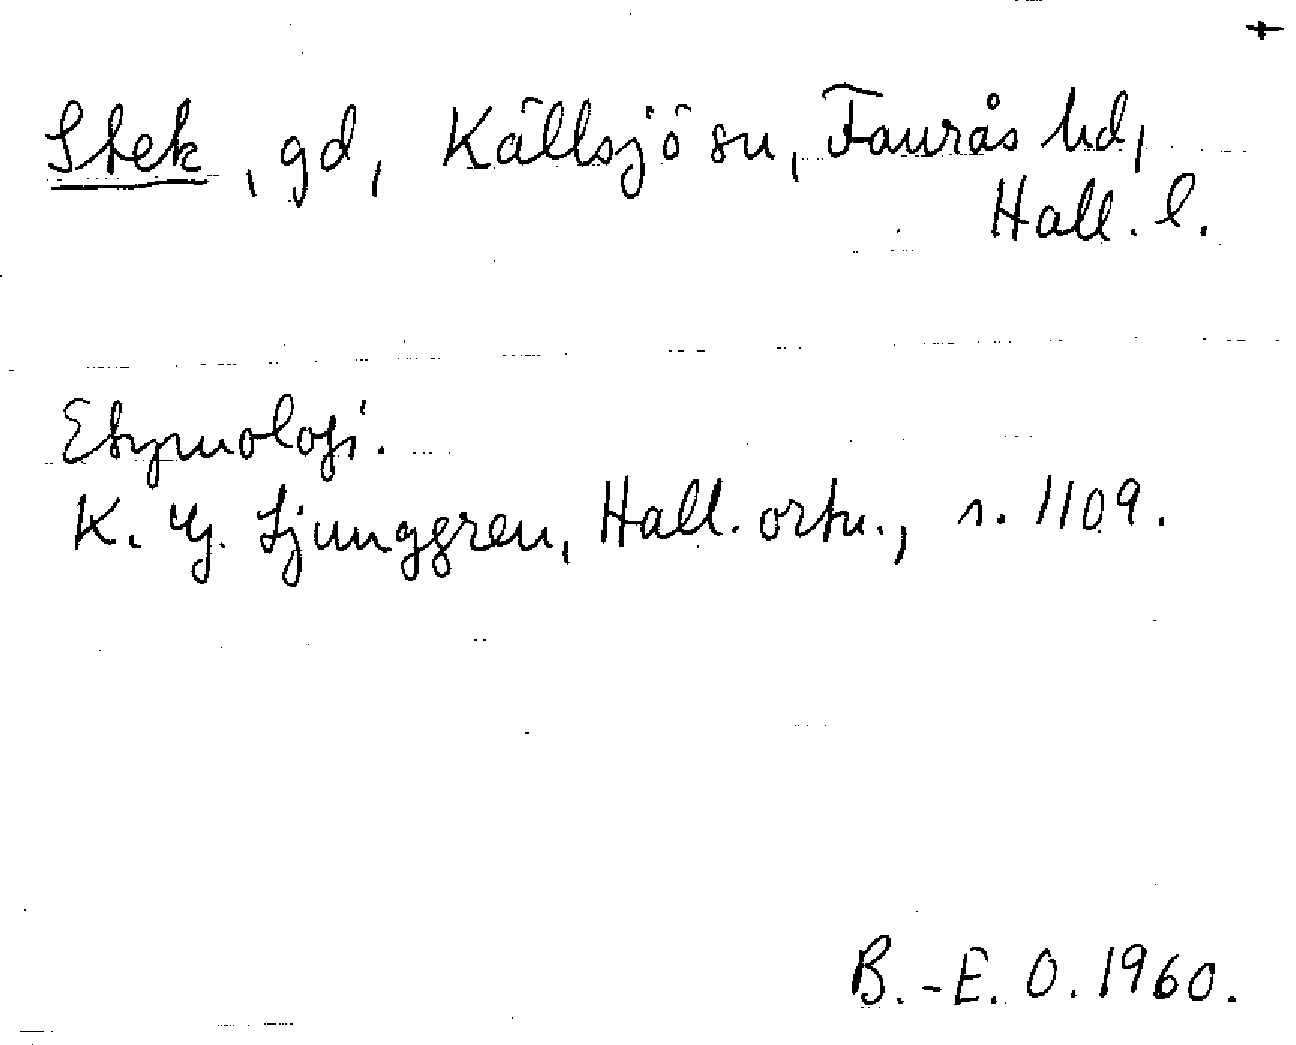 +
Stek, gd, Källsjö sn, Faurås hd,
Hall. l.
Etymologi.
K. G. Ljunggren, Hall. ortn., s. 1109.
B.-E. O. 1960.